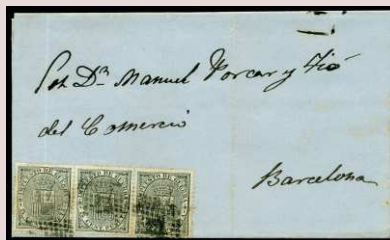 Sor. Dn. Manuel Porcar y Tió
del Comercio
Barcelona